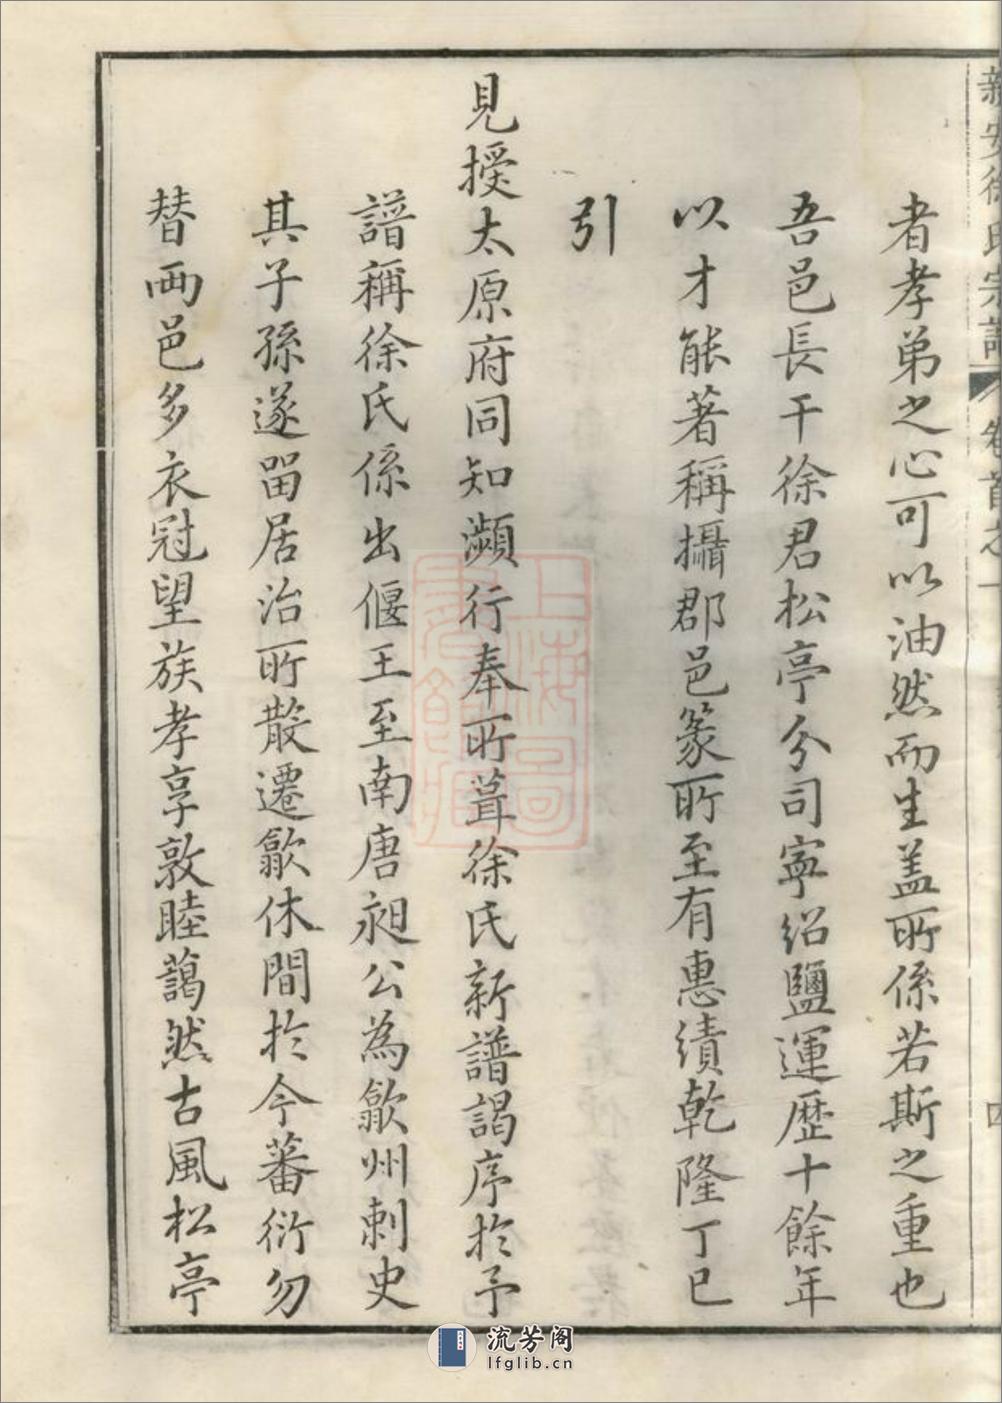 新安徐氏宗譜 卷首之一 四
者孝弟之心可以油然而生盖所係若斯之重也
吾邑長干徐君松亭分司寧紹鹽運歷十餘年
以才能著稱攝郡邑篆所至有惠績乾隆丁巳
引
見授太原府同知瀕行奉所葺徐氏新譜謁序於予
譜稱徐氏係出偃王至南唐昶公為歙州刺史
其子孫遂畱居治所散遷歙休間於今蕃衍勿
替兩邑多衣冠望族孝享敦睦藹然古風松亭
上海圖書館藏
流芳阁
lfglib.cn